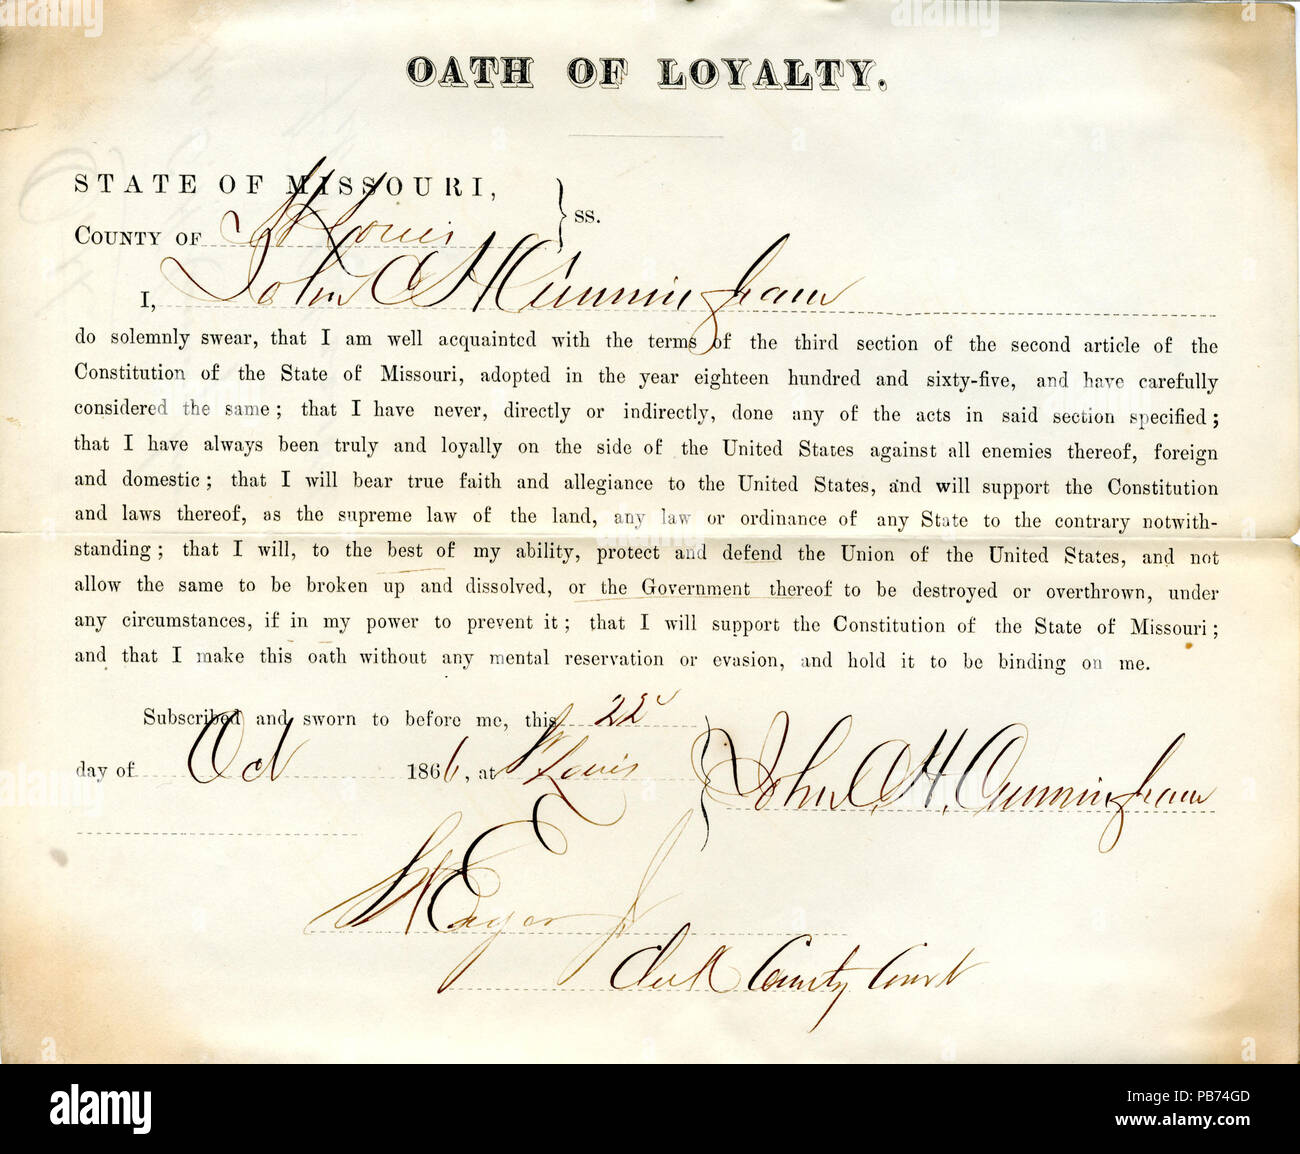 OATH OF LOYALTY.
STATE OF MISSOURI,
COUNTY OF St Louis } ss.
I, John C H Cunningham
do solemnly swear, that I am well acquainted with the terms of the third section of the second article of the
Constitution of the State of Missouri, adopted in the year eighteen hundred and sixty-five, and have carefully
considered the same; that I have never, directly or indirectly, done any of the acts in said section specified;
that I have always been truly and loyally on the side of the United States against all enemies thereof, foreign
and domestic; that I will bear true faith and allegiance to the United States, and will support the Constitution
and laws thereof, as the supreme law of the land, any law or ordinance of any State to the contrary notwith-
standing; that I will, to the best of my ability, protect and defend the Union of the United States, and not
allow the same to be broken up and dissolved, or the Government thereof to be destroyed or overthrown, under
any circumstances, if in my power to prevent it; that I will support the Constitution of the State of Missouri;
and that I make this oath without any mental reservation or evasion, and hold it to be binding on me.
Subscribed and sworn to before me, this 22d
day of Oct 1866, at St Louis
John C. H. Cunningham
Clerk County Court
alamy
a
alamy
Image ID: PB74GD
www.alamy.com